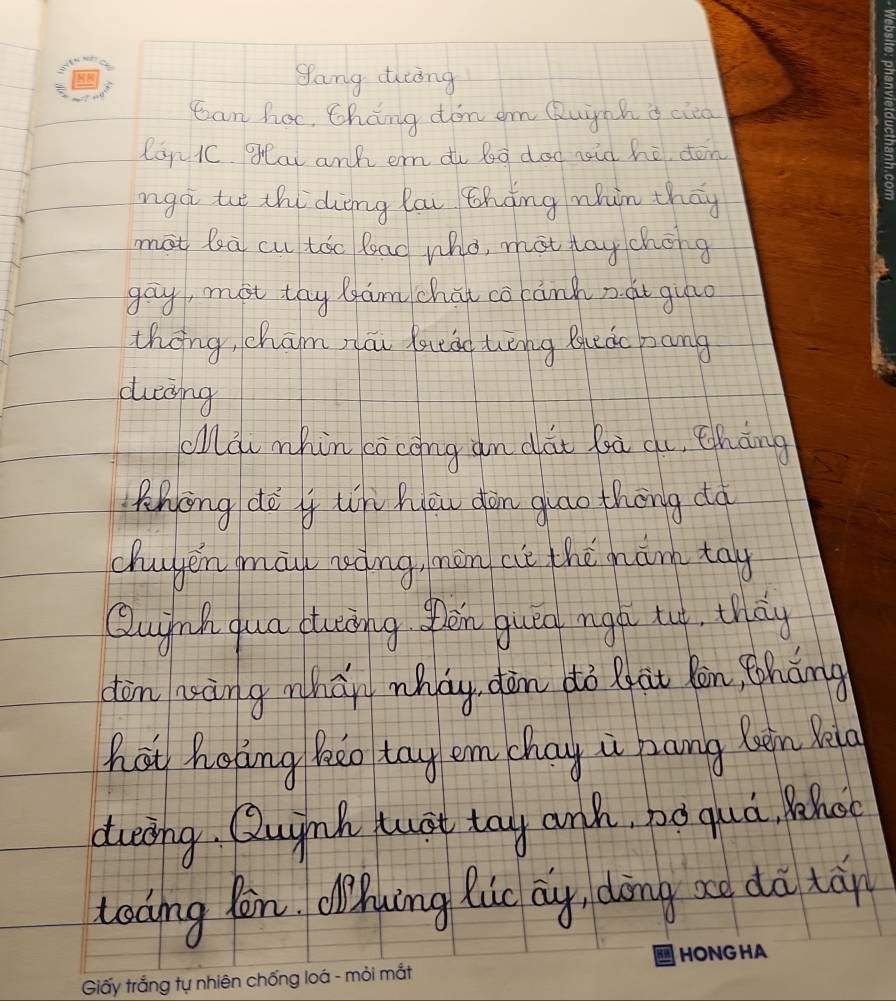 Sang đường
Tan học, Thắng đón em Quỳnh ở cửa
lớp 1C. Hai anh em đi bộ dọc vỉa hè, đến
ngã tư thì dừng lại. Thắng nhìn thấy
một bà cụ tóc bạc phơ, một tay chống
gậy, một tay bám chặt cô cảnh sát giao
thông, chậm rãi bước từng bước sang
đường
Mải nhìn cô công an dắt bà cụ, Thắng
không để ý tín hiệu đèn giao thông đã
chuyển màu vàng, nên cứ thế nắm tay
Quỳnh qua đường. Đến giữa ngã tư, thấy
đèn vàng nhấp nháy, đèn đỏ bật lên, Thắng
hốt hoảng kéo tay em chạy ù sang bên kia
đường. Quỳnh tuột tay anh, sợ quá, khóc
toáng lên. Nhưng lúc ấy, dòng xe đã tấp
HH
HONG HA
Giấy trắng tự nhiên chống loá - mỏi mắt
Website: phanvietduchanh.com